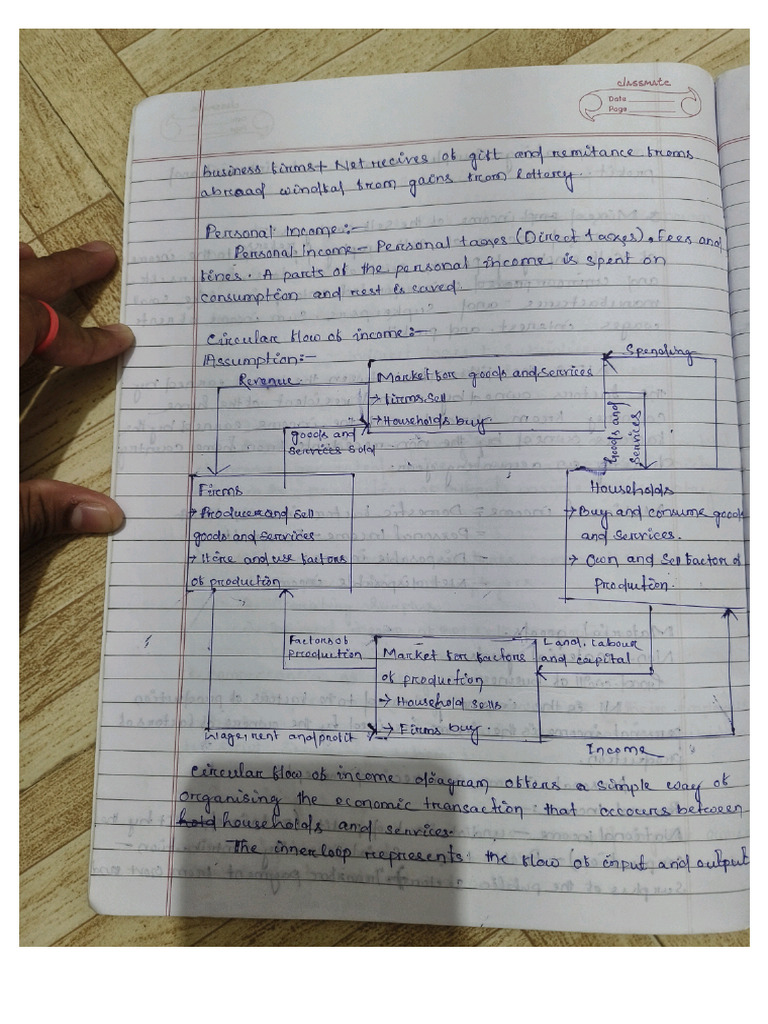 classmate
Date
Page
business firms + Net recives of gift and remitance froms
abroad windfal from gains from lottery.
Personal Income:-
Personal income - Personal taxes (Direct taxes), Fees and
fines. A parts of the personal income is spent on
consumption and rest is saved.
Circular flow of income:-
Assumption:-
Revenue
Market for goods and services
→ Firms sell
→ Households buy
Spending
goods and
services sold
Goods and
services
Firms
→ Producer and sell
goods and services
→ Hire and use factors
of production
Households
→ Buy and consume goods
and services.
→ Own and sell factor of
production.
Factors of
production
Market for factors
of production
→ Household sells
→ Firms buy.
Land, Labour
and capital
Wage rent and profit
Income
Circular flow of income diagram offers a simple way of
organising the economic transaction that occours between
hold households and services.
The inner loop represents the flow of input and output